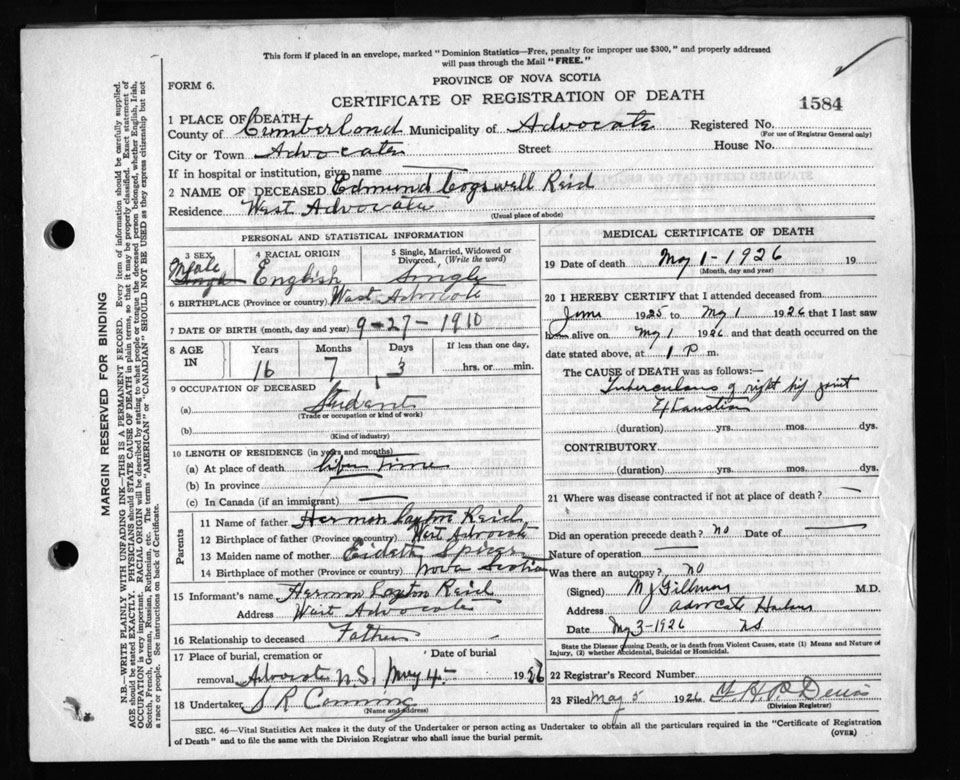 This form if placed in an envelope, marked "Dominion Statistics—Free, penalty for improper use $300," and properly addressed
will pass through the Mail "FREE."
FORM 6.
PROVINCE OF NOVA SCOTIA
CERTIFICATE OF REGISTRATION OF DEATH
1584
1 PLACE OF DEATH
County of Cumberland Municipality of Advocate Registered No.
(For use of Registrar General only)
City or Town Advocate Street House No.
If in hospital or institution, give name
2 NAME OF DECEASED Edmund Cogswell Reid
Residence West Advocate
(Usual place of abode)
PERSONAL AND STATISTICAL INFORMATION
3 SEX
Male
4 RACIAL ORIGIN
English
5 Single, Married, Widowed or Divorced. (Write the word)
Single
6 BIRTHPLACE (Province or country) West Advocate
7 DATE OF BIRTH (month, day and year) 9-27-1910
8 AGE IN
Years Months Days If less than one day,
16 7 3 hrs. or min.
9 OCCUPATION OF DECEASED
(a) Student
(Trade or occupation or kind of work)
(b)
(Kind of industry)
10 LENGTH OF RESIDENCE (in years and months)
(a) At place of death life Time
(b) In province
(c) In Canada (if an immigrant)
Parents
11 Name of father Herman Layton Reid
12 Birthplace of father (Province or country) West Advocate
13 Maiden name of mother
14 Birthplace of mother (Province or country) Nova Scotia
15 Informant's name Herman Layton Reid
Address West Advocate
16 Relationship to deceased Father
17 Place of burial, cremation or removal Advocate N.S. Date of burial May 4 1926
18 Undertaker S R
(Name and address)
MEDICAL CERTIFICATE OF DEATH
19 Date of death May 1-1926 19
(Month, day and year)
20 I HEREBY CERTIFY that I attended deceased from
June 1925 to May 1 1926 that I last saw
him alive on May 1 1926 and that death occurred on the
date stated above, at 1 P m.
The CAUSE of DEATH was as follows:—
Tuberculosis of right hip joint
(duration) yrs. mos. dys.
CONTRIBUTORY
(duration) yrs. mos. dys.
21 Where was disease contracted if not at place of death?
Did an operation precede death? no Date of
Nature of operation
Was there an autopsy? no
(Signed) M.D.
Address Advocate Harbour
Date May 3-1926 NS
State the Disease Causing Death, or in death from Violent Causes, state (1) Means and Nature of
Injury, (2) whether Accidental, Suicidal or Homicidal.
22 Registrar's Record Number
23 Filed May 5 1926
(Division Registrar)
SEC. 46—Vital Statistics Act makes it the duty of the Undertaker or person acting as Undertaker to obtain all the particulars required in the "Certificate of Registration
of Death" and to file the same with the Division Registrar who shall issue the burial permit.
(OVER)
MARGIN RESERVED FOR BINDING
N.B.—WRITE PLAINLY WITH UNFADING INK—THIS IS A PERMANENT RECORD. Every item of information should be carefully supplied.
AGE should be stated EXACTLY. PHYSICIANS should STATE CAUSE OF DEATH in plain terms, so that it may be properly classified. Exact statement of
OCCUPATION is very important. RACIAL ORIGIN will be described by stating to what people or tongue the deceased person belonged, whether English, Irish,
Scotch, French, German, Russian, Ruthenian, etc. The terms "AMERICAN" or "CANADIAN" SHOULD NOT BE USED as they express citizenship but not
a race or people. See instructions on back of Certificate.